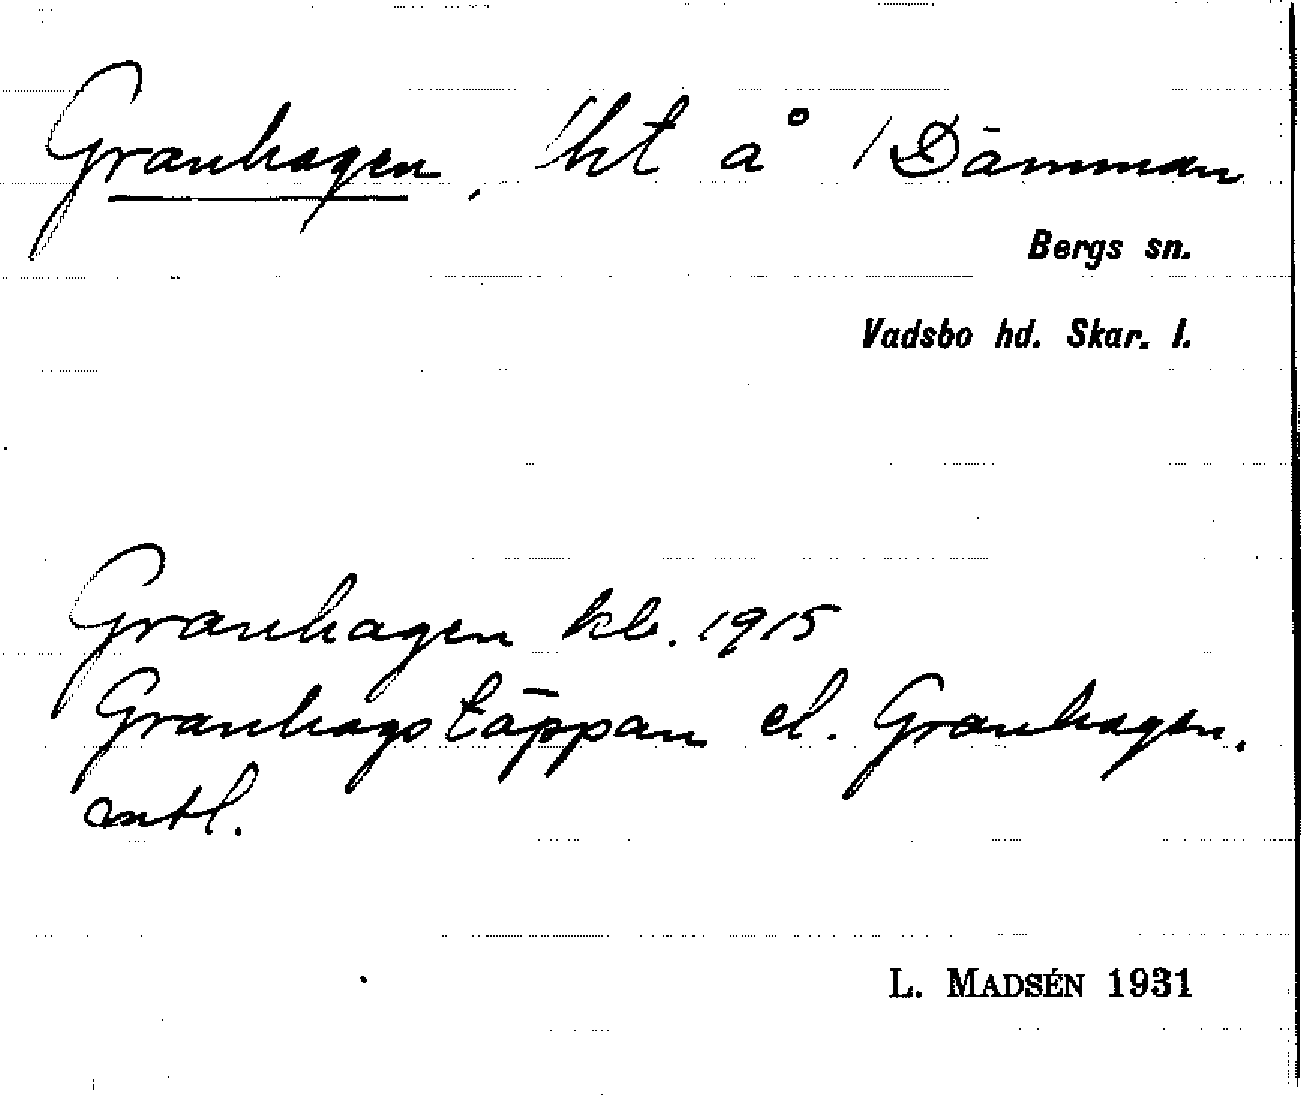 Granhagen, lht å 1 Dämman
Bergs sn.
Vadsbo hd. Skar. l.
Granhagen kb. 1915
Granhagstäppan el. Granhagen.
mtl.
L. MADSÉN 1931